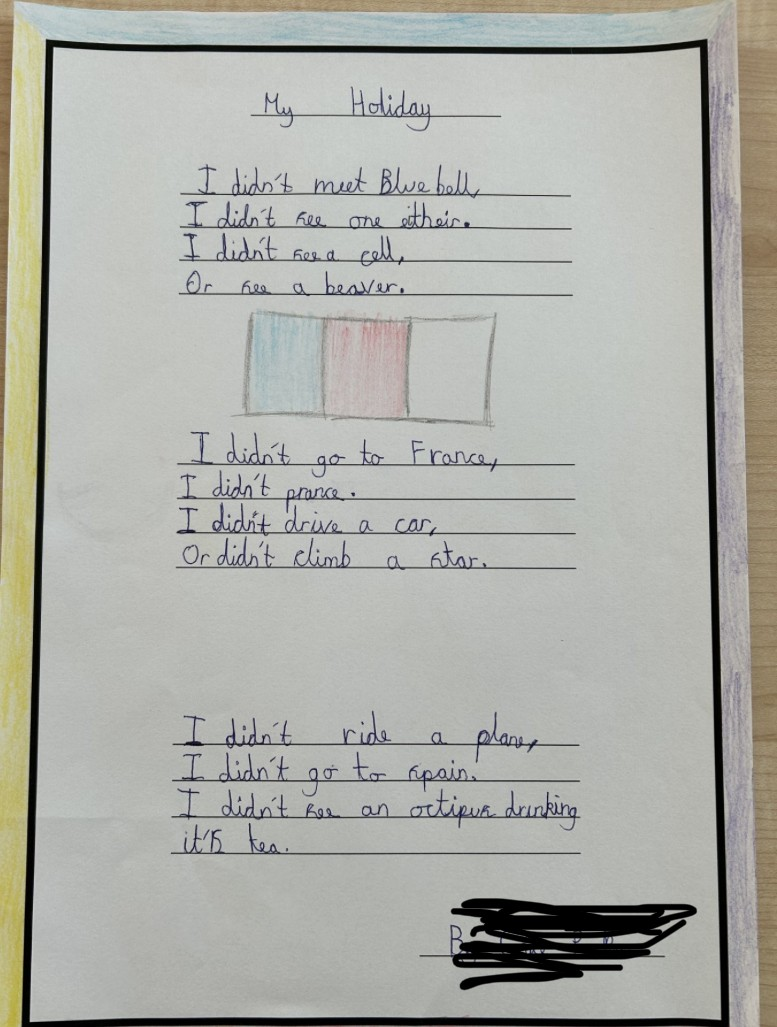 My Holiday
I didn't meet Blue bell,
I didn't see one eitheir.
I didn't see a cell,
Or see a beaver.
I didn't go to France,
I didn't prance.
I didn't drive a car,
Or didn't climb a star.
I didn't ride a plane,
I didn't go to spain.
I didn't see an octipus drinking
it's tea.